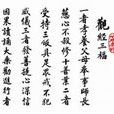 觀經三福
一者孝養父母奉事師長
慈心不殺修十善業二者
受持三飯具足眾戒不犯
威儀三者發菩提心深信
因果讀誦大乘勸進行者